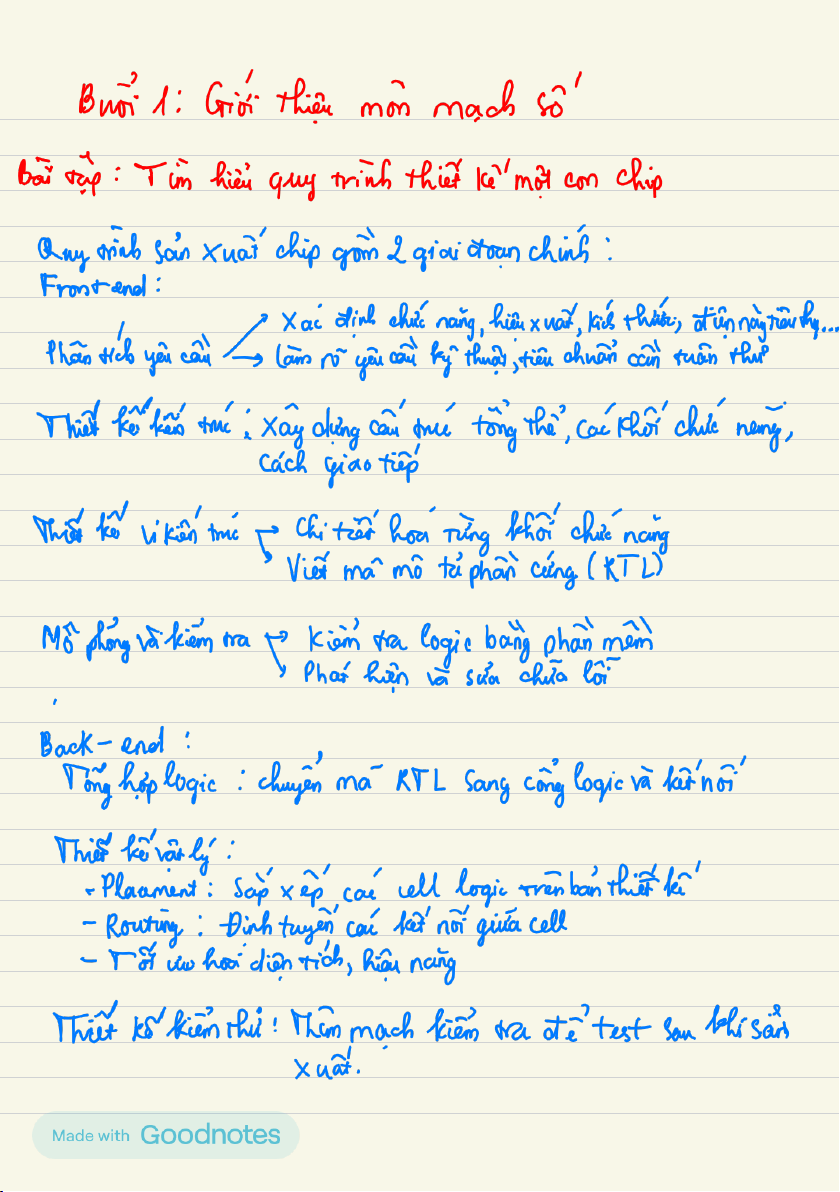 Buổi 1: Giới thiệu môn mạch số
Bài tập: Tìm hiểu quy trình thiết kế một con chip
Quy trình sản xuất chip gồm 2 giai đoạn chính:
Front-end:
Xác định chức năng, hiệu xuất, kích thước, điện năng tiêu thụ...
Phân tích yêu cầu
làm rõ yêu cầu kỹ thuật, tiêu chuẩn cần tuân thủ
Thiết kế kiến trúc: Xây dựng cấu trúc tổng thể, các khối chức năng,
cách giao tiếp
Thiết kế vi kiến trúc → Chi tiết hoá từng khối chức năng
Viết mã mô tả phần cứng (RTL)
Mô phỏng và kiểm tra → Kiểm tra logic bằng phần mềm
Phát hiện và sửa chữa lỗi
Back-end:
Tổng hợp logic: chuyển mã RTL sang cổng logic và kết nối
Thiết kế vật lý:
- Placement: Sắp xếp các cell logic trên bản thiết kế
- Routing: Định tuyến các kết nối giữa cell
- Tối ưu hoá diện tích, hiệu năng
Thiết kế kiểm thử: Thêm mạch kiểm tra để test sau khi sản
xuất.
Made with Goodnotes